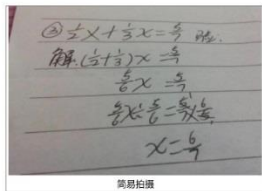 ③ 1/2 x + 1/3 x = 5/7
解:(1/2+1/3)x = 5/7
5/6 x = 5/7
5/6 x ÷ 5/6 = 5/7 × 6/5
x = 6/7
简易拍摄